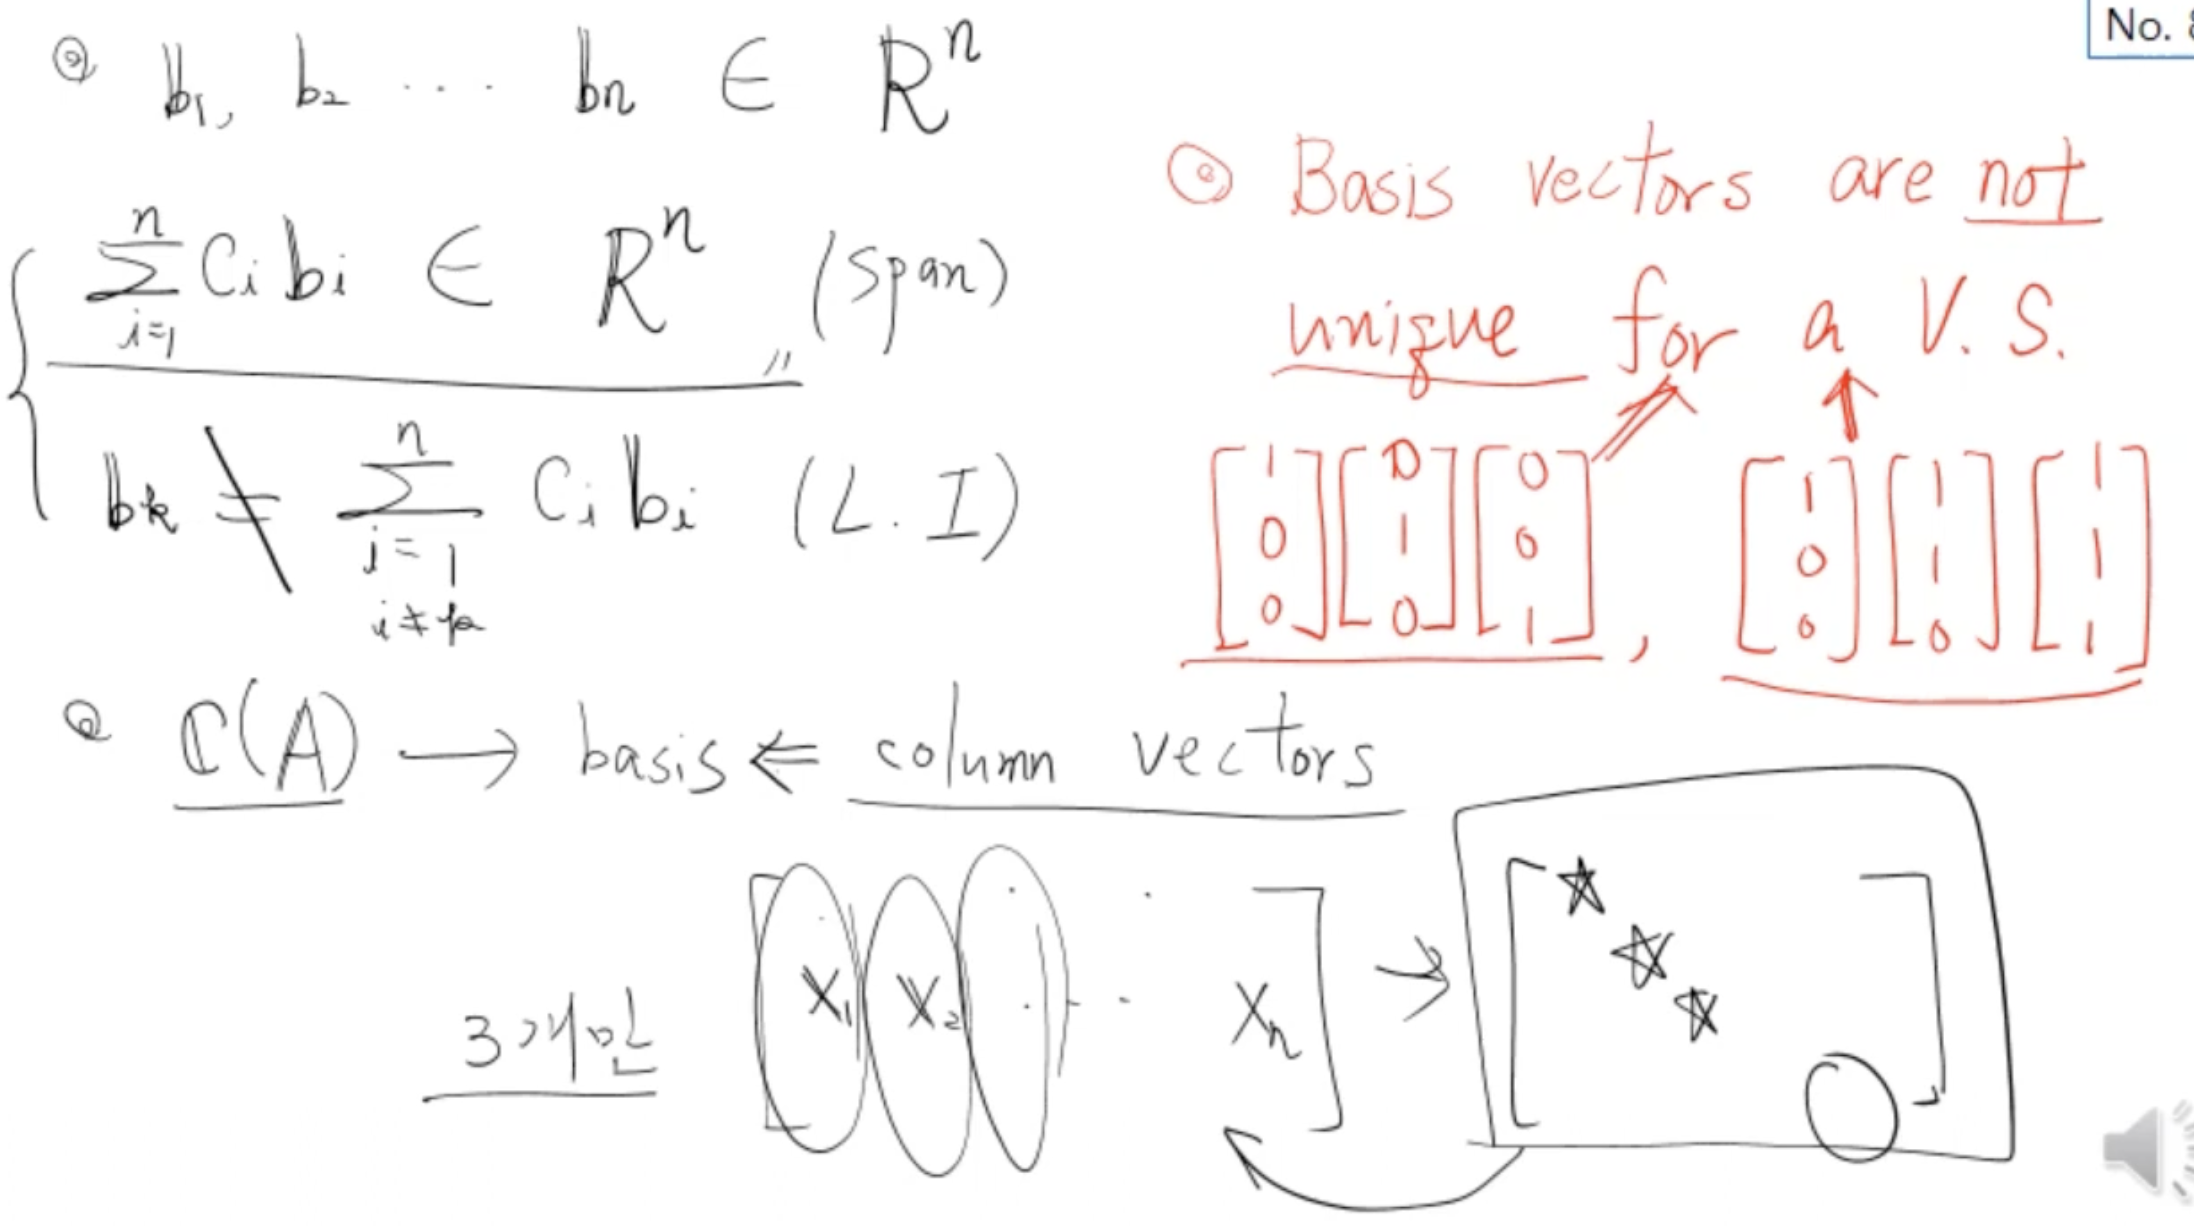 No. 8
b₁, b₂ ... bn ∈ Rⁿ
n
∑ Ci bi ∈ Rⁿ (span)
i=1
n
bk ≠ ∑ Ci bi (L.I)
i=1
i≠k
Basis vectors are not
unique for a V.S.
[1 0 0] [0 1 0] [0 0 1] , [1 0 0] [1 1 0] [1 1 1]
C(A) → basis ⇐ column vectors
3개만 [X₁ X₂ ... Xn] → [☆ ☆ ☆ ]